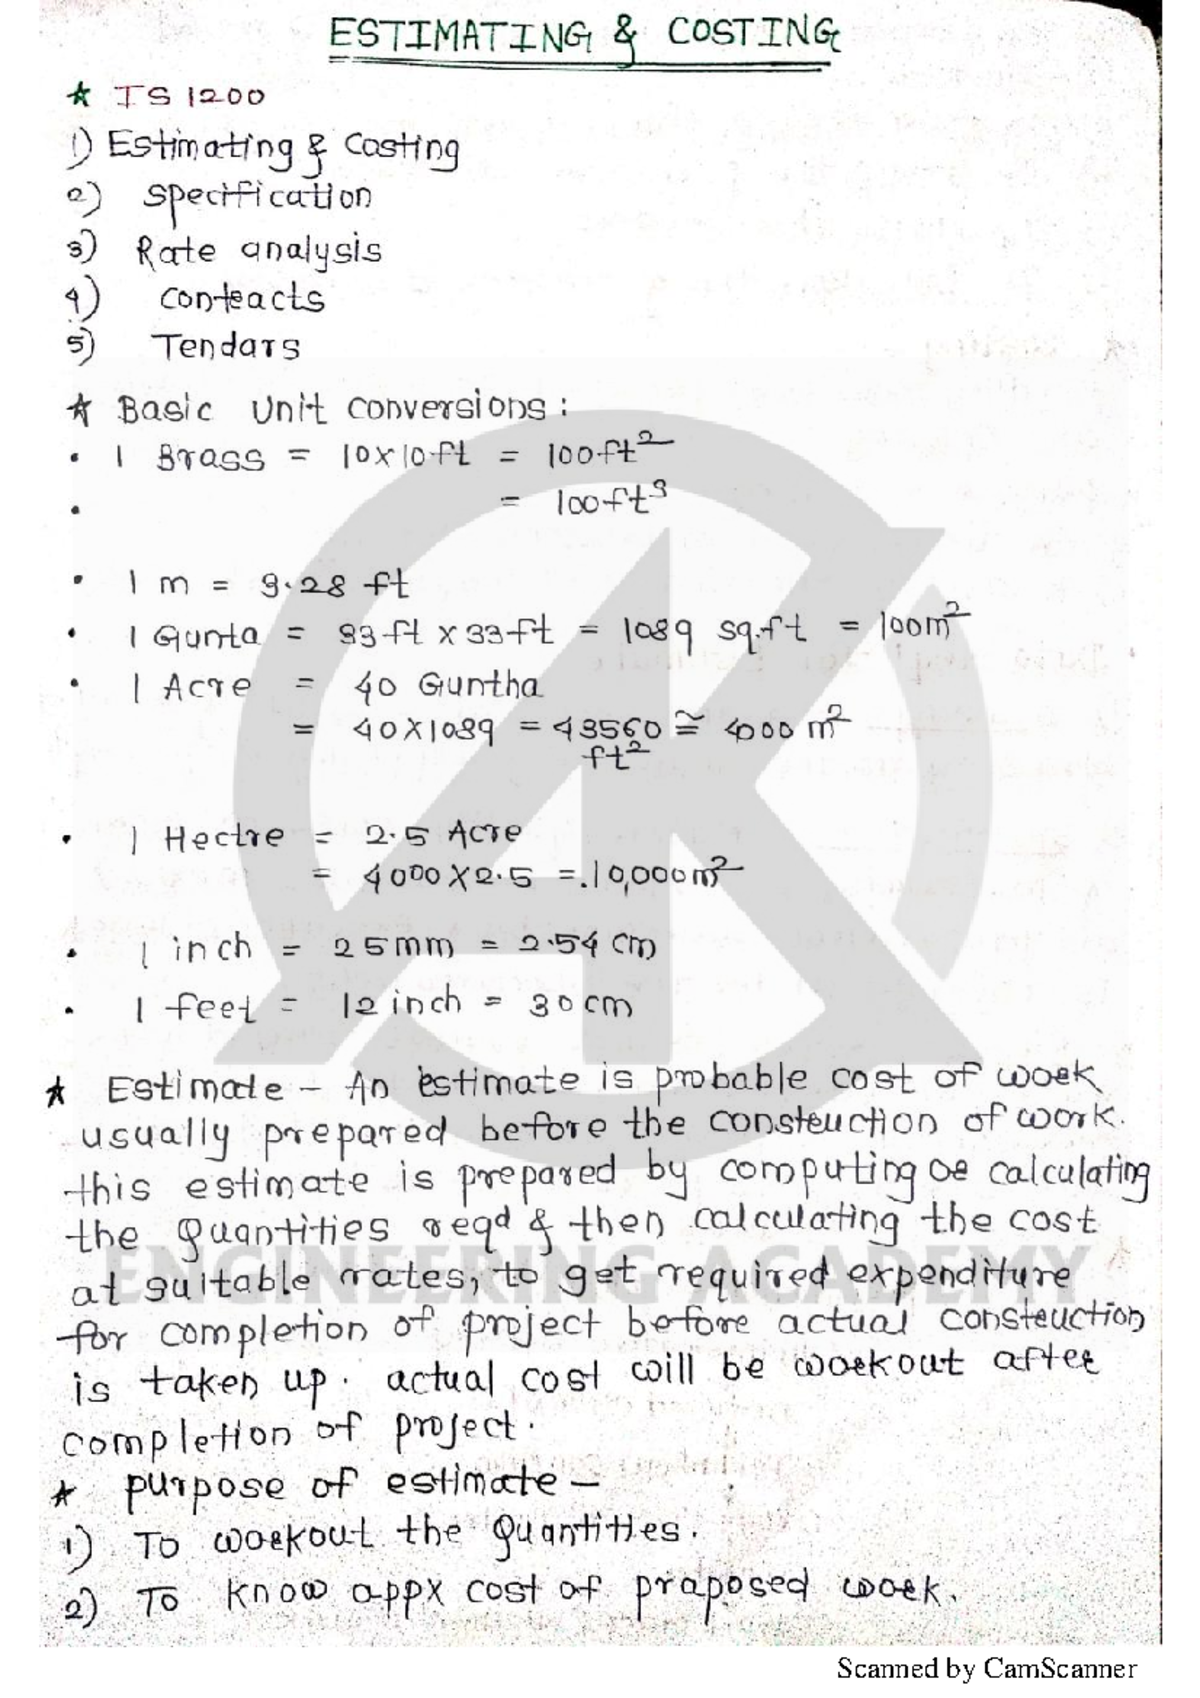 ESTIMATING & COSTING
★ IS 1200
1) Estimating & Costing
2) Specification
3) Rate analysis
4) Contracts
5) Tendars
★ Basic Unit conversions :
• 1 Brass = 10x10ft = 100ft²
• = 100ft³
• 1 m = 3.28 ft
• 1 Gunta = 33ft x 33ft = 1089 sq.ft = 100m²
• 1 Acre = 40 Guntha
= 40X1089 = 43560 ≅ 4000 m²
ft²
• 1 Hectre = 2.5 Acre
= 4000X2.5 =.10,000m²
• 1 inch = 25mm = 2.54 cm
• 1 feet = 12 inch = 30cm
★ Estimate - An estimate is probable cost of work
usually prepared before the construction of work.
this estimate is prepared by computing or calculating
the quantities reqd & then calculating the cost
at suitable rates, to get required expenditure
ENGINEERING ACADEMY
for completion of project before actual construction
is taken up. actual cost will be workout after
completion of project.
★ purpose of estimate -
1) To workout the quantities.
2) To know appx cost of praposed work.
Scanned by CamScanner